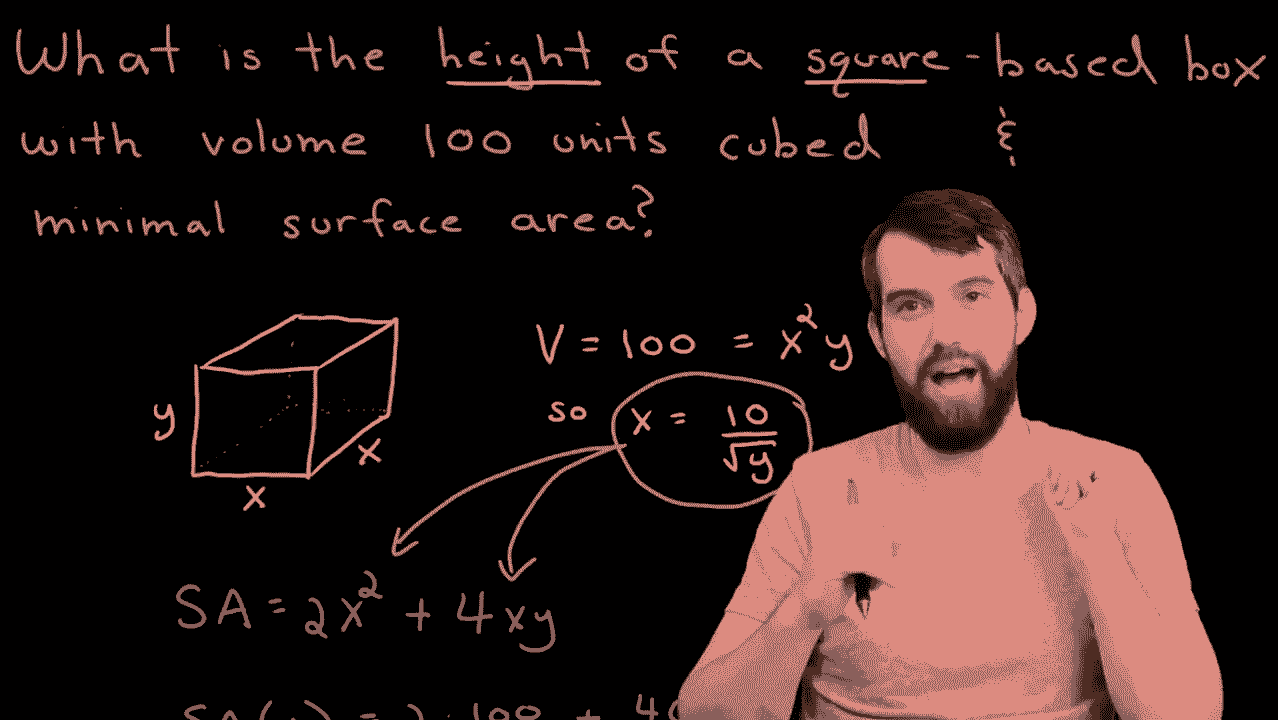 What is the height of a square-based box
with volume 100 units cubed &
minimal surface area?
V = 100 = x²y
so x = 10/√y
y
x
x
SA = 2x² + 4xy
SA(y) = 2·100 + 4